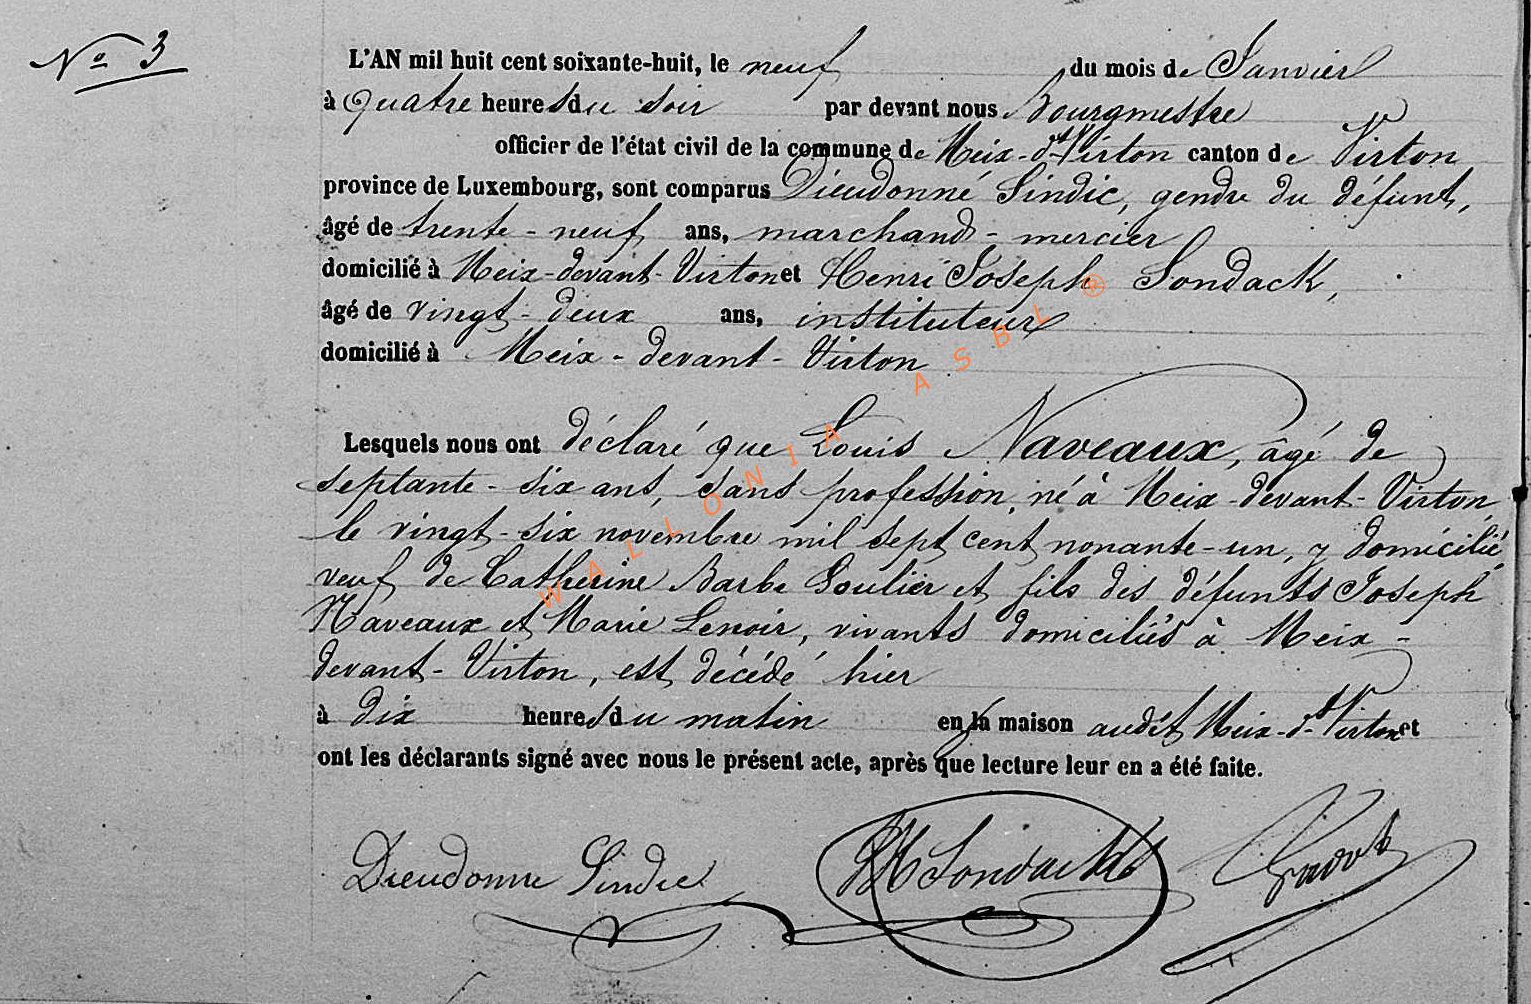 No 3
L'AN mil huit cent soixante-huit, le neuf du mois de Janvier
à quatre heures du soir par devant nous Bourgmestre
officier de l'état civil de la commune de Meix-dt-Virton canton de Virton
province de Luxembourg, sont comparus Dieudonné Sindic, gendre du défunt,
âgé de trente-neuf ans, marchand-mercier
domicilié à Meix-devant-Virton et Henri Joseph Sondack,
âgé de vingt-deux ans, instituteur
domicilié à Meix-devant-Virton
Lesquels nous ont déclaré que Louis Naveaux, âgé de
septante-six ans, sans profession, né à Meix-devant-Virton
le vingt-six novembre mil sept cent nonante-un, y domicilié,
veuf de Catherine Barbe Goulier et fils des défunts Joseph
Naveaux et Marie Lenoir, vivants domiciliés à Meix-
devant-Virton, est décédé hier
à dix heures du matin en la maison audit Meix-dt-Virton et
ont les déclarants signé avec nous le présent acte, après que lecture leur en a été faite.
Dieudonne Sindic HSondack
WALLONIA ASBL ®